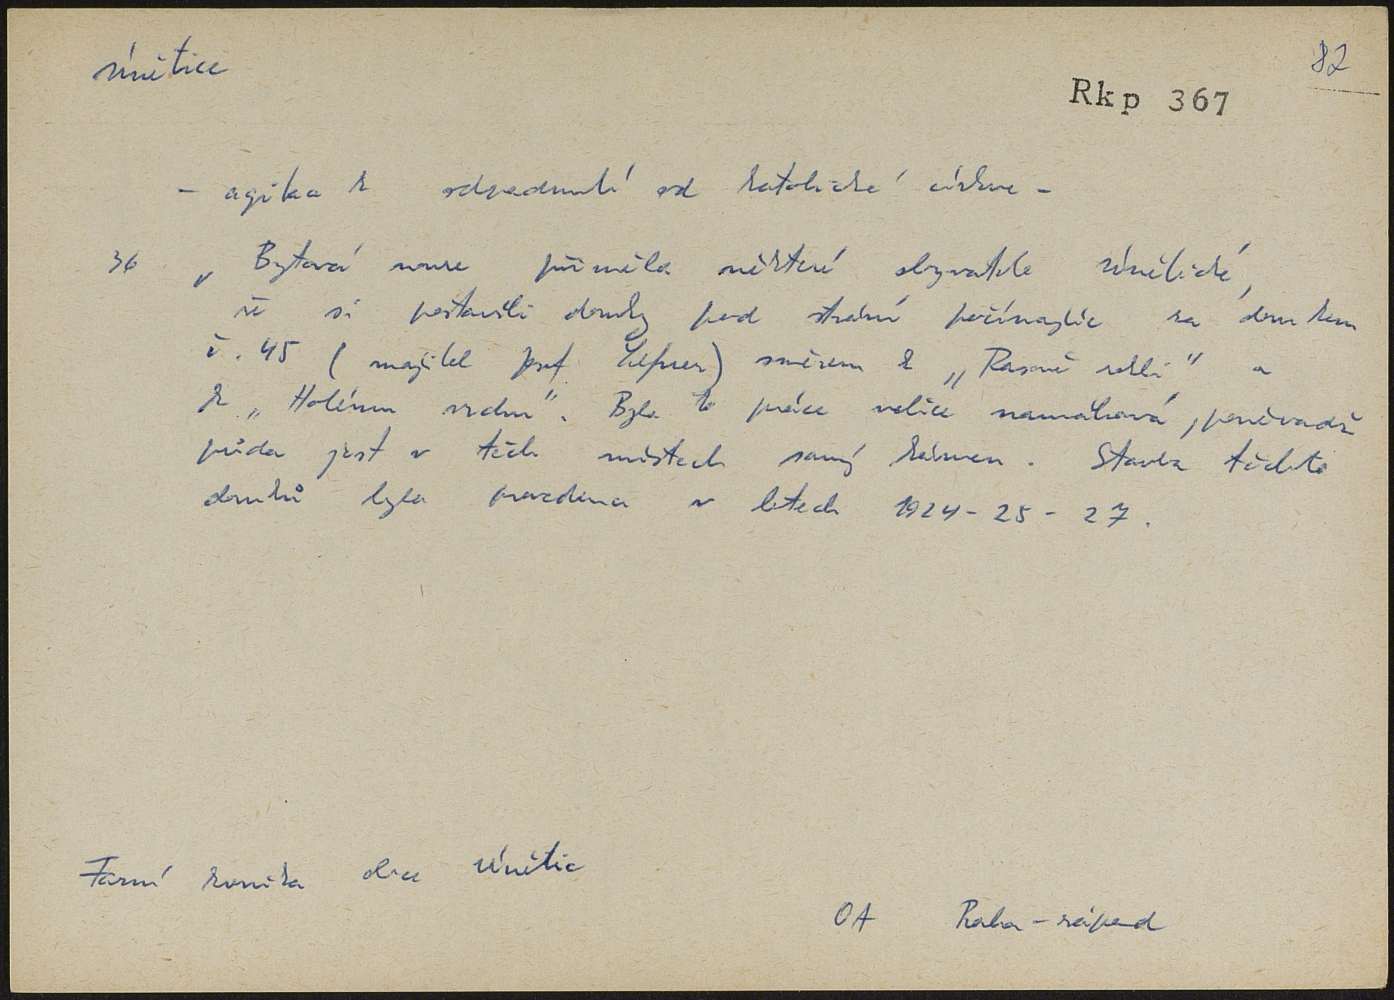 Únětice
82
Rkp 367
- agitace k odpadnutí od katolické církve -
36 „Bytová nouze přiměla některé obyvatele únětické,
že si postavili domky pod strání počínajíc za domkem
č. 45 (majitel Josef) směrem k „Rasově rokli" a
k „Holému vrchu". Byla to práce velice namáhavá, poněvadž
půda jest v těch místech samý kámen. Stavba těchto
domků byla provedena v letech 1924-25-27.
Farní kronika obce Únětic
OA Praha-západ